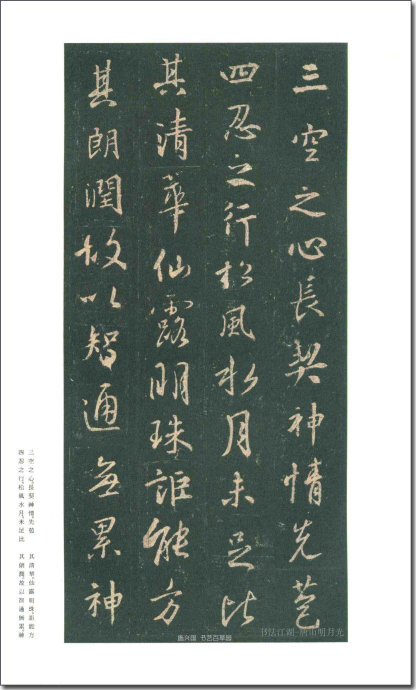 三空之心長契神情先苞
四忍之行松風水月未足比
其清華仙露明珠詎能方
其朗潤故以智通無累神
三空之心，長契神情，先苞
四忍之行。松風水月，未足比
其清華；仙露明珠，詎能方
其朗潤。故以智通無累，神
唐兴国 书艺百草园
书法江湖-唐山明月光